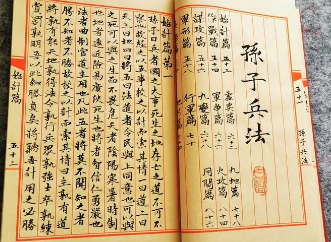 孫子兵法
孫子兵法
始計篇 五十二
作戰篇
謀攻篇
軍形篇 五十八
兵勢篇
虛實篇
軍爭篇
九變篇
行軍篇 七十
九地篇 七十八
火攻篇 八十四
用間篇 八十六
始計篇第一
孫子曰兵者國之大事死生之地存亡之道不可不
察也故經之以五事校之以計而索其情一曰道二曰
天三曰地四曰將五曰法道者令民與上同意也可以與
之死可以與之生而不畏危也天者陰陽寒暑時制
也地者遠近險易廣狹死生也將者智信仁勇嚴也
法者曲制官道主用也凡此五者將莫不聞知之者
勝不知者不勝故校之以計而索其情曰主孰有道
將孰有能天地孰得法令孰行兵眾孰強士卒孰練
賞罰孰明吾以此知勝負矣將聽吾計用之必勝
始計篇 五十二